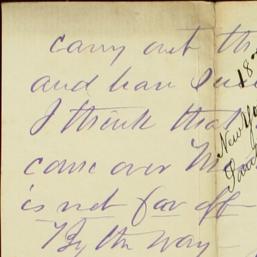 carry out th
and have
I think that
come over the
is not far off
By the way
18
New Yo